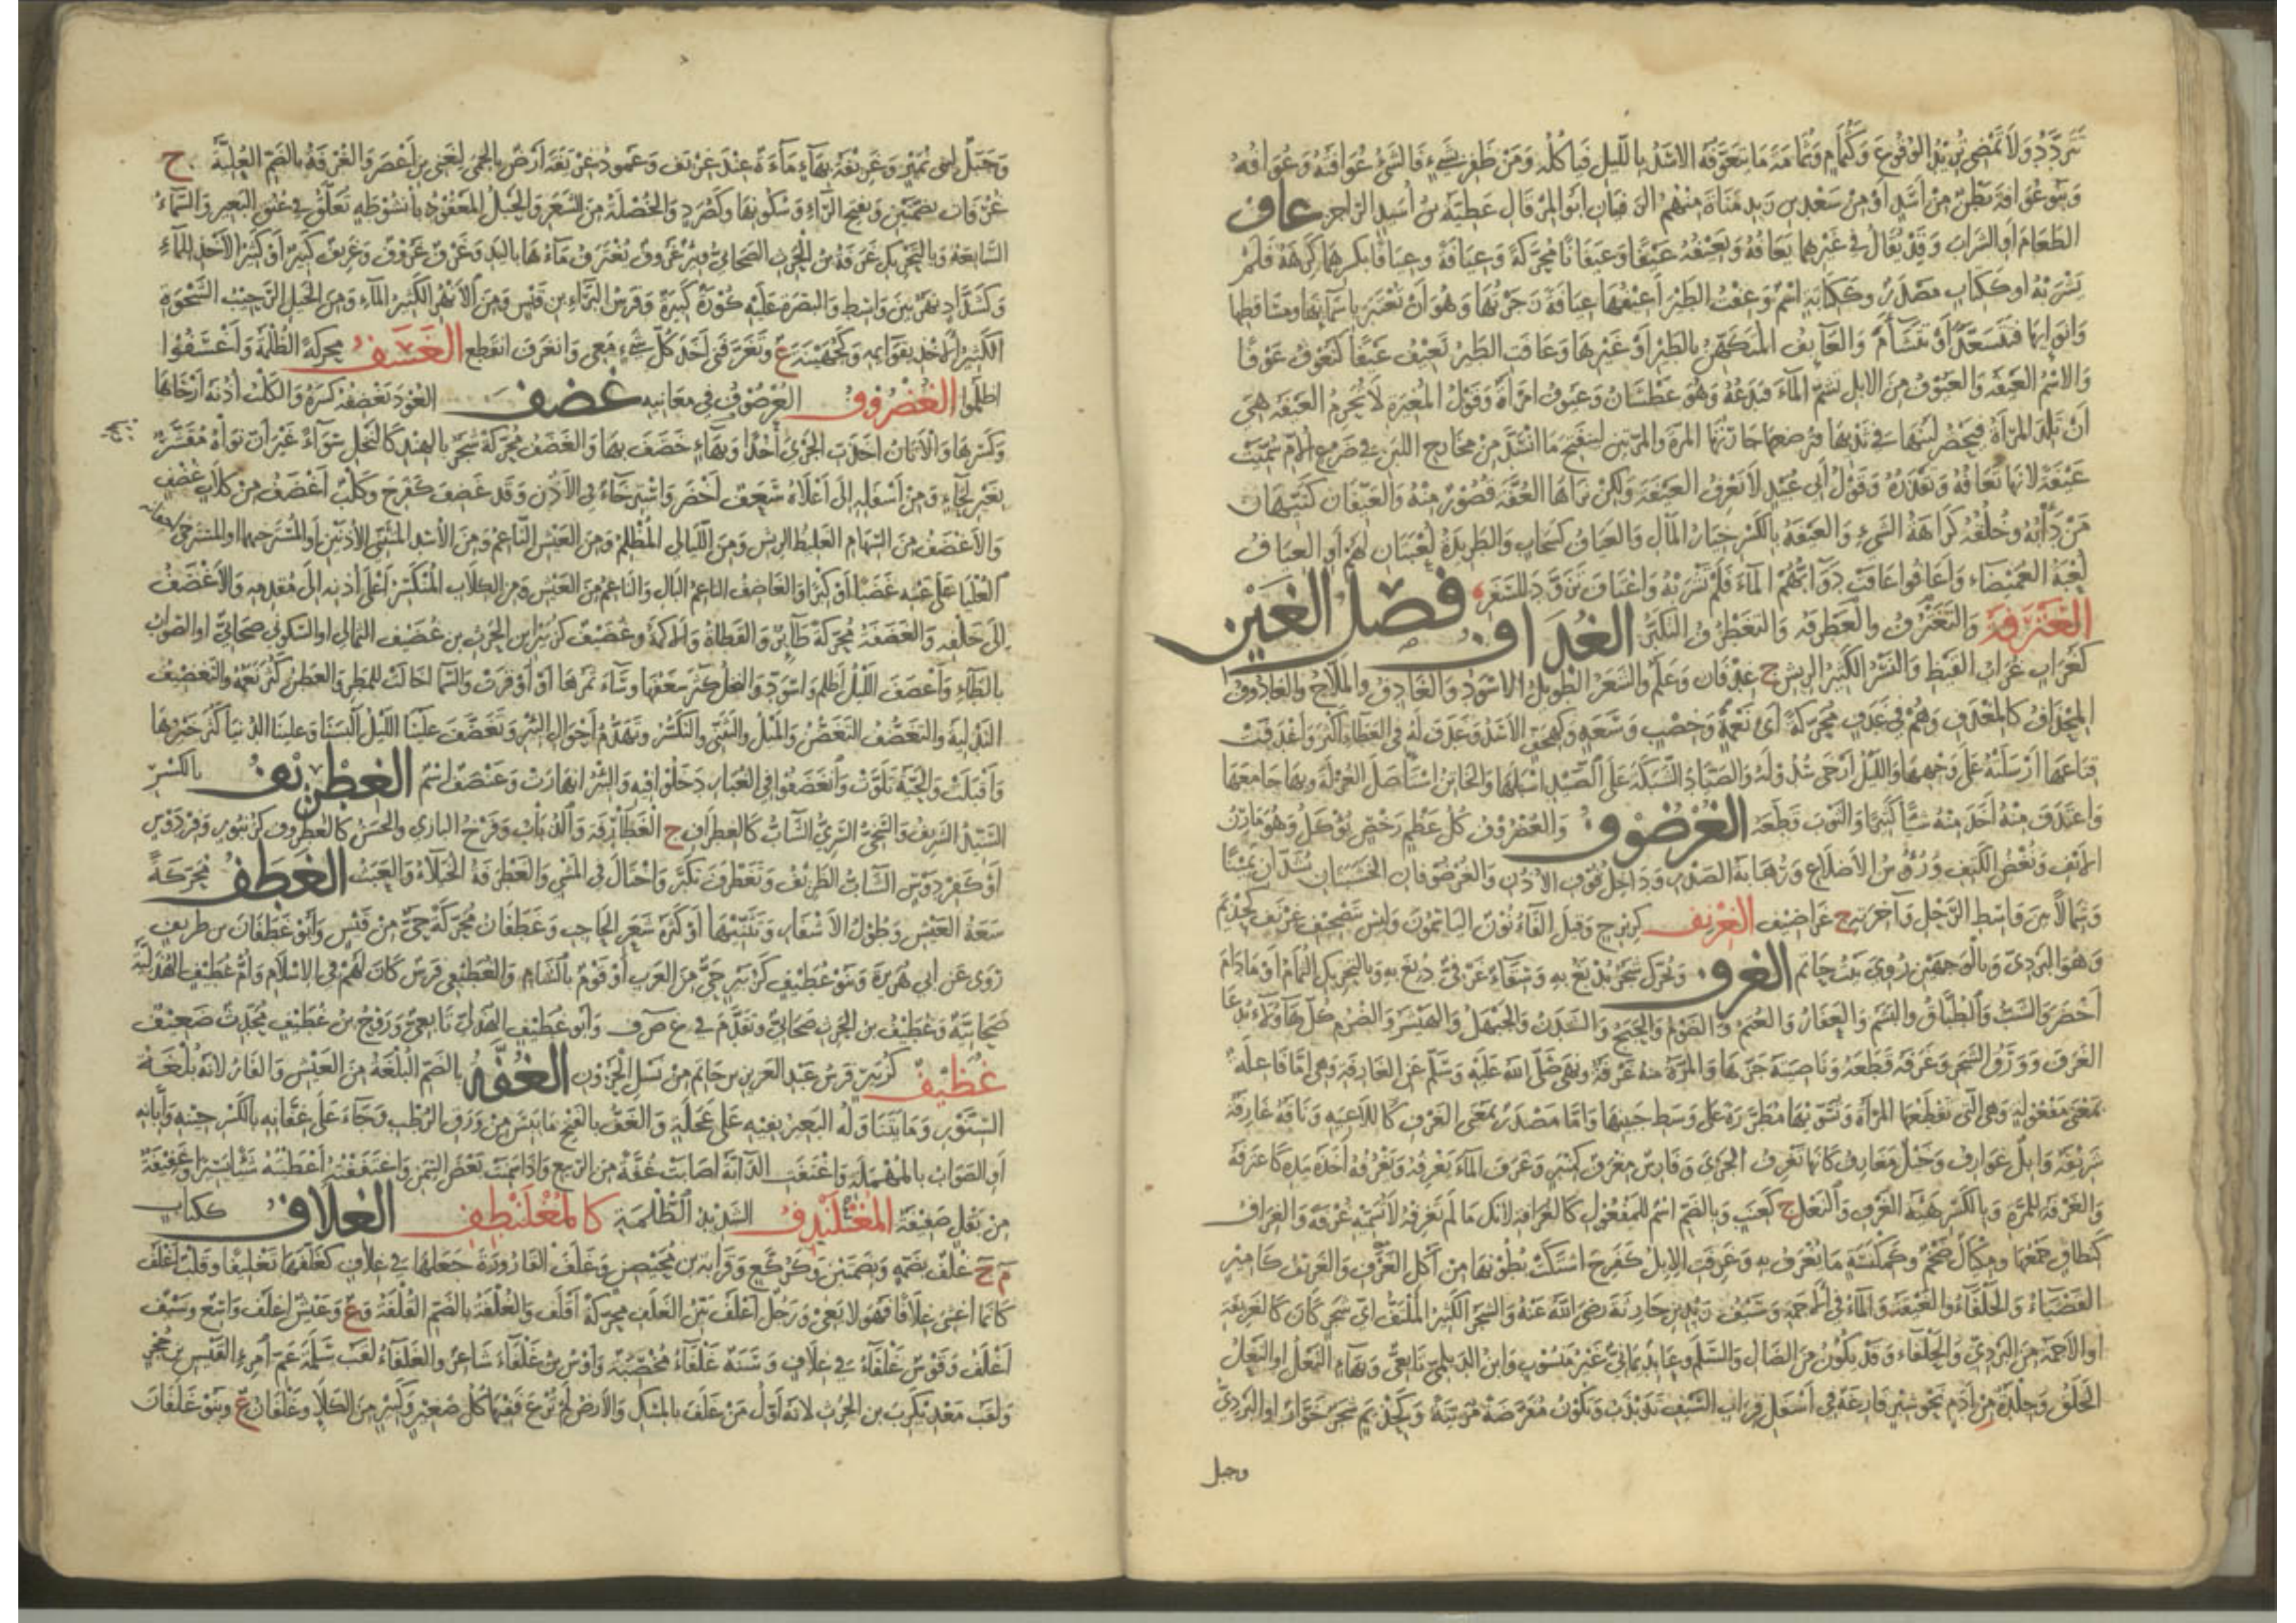 تتردد ولا تمضي تريد الوقوع وكثمام وثمامة ما يتعوفه الاسد بالليل فيأكله ومن ظفر بشيء فالشيء عوافته وعوافه
وبنو عوافة بطن من أسد أو من سعد بن زيد مناة منهم الزفيان أبو المرقال عطية بن أسيد الراجز عاف
الطعام أو الشراب وقد يقال في غيرهما يعافه ويعيفه عيفا وعيفانا محركة وعيافة وعيافا بكسرهما كرهه فلم
يشربه أو ككتاب مصدر وككتابة اسم وعفت الطير أعيفها عيافة زجرتها وهو أن تعتبر بأسمائها ومساقطها
وأنوائها فتتسعد أو تتشأم والعائف المتكهن بالطير أو غيرها وعافت الطير تعيف عيفا كتعوف عوفا
والاسم العيفة والعيوف من الابل يشم الماء فيدعه وهو عطشان وعيوف امرأة وقول المغيرة لا تحرم العيفة هي
أن تلد المرأة فيحصر لبنها في ثديها فترضعها جارتها المرة والمرتين لينفتح ما انسد من مخارج اللبن في ضرع الأم سميت
عيفة لأنها تعافه وتقذره وقول أبي عبيد لا نعرف العيفة ولكن نراها العفة قصور منه والعيفان كتيهان
من دأبه وخلقه كراهة الشيء والعيفة بالكسر خيار المال والعياف كسحاب والطريدة لعبتان لهم أو العياف
لعبة الغميصاء وأعافوا عافت دوابهم الماء فلم تشربه واعتاف تزود للسفر فصل الغين
الغترفة والتغترف والغطرفة والتغطرف التكبر الغداف
كغراب غراب القيظ والنسر الكثير الريش ج غدفان وعلم والشعر الطويل الاسود والغادف والملاح والغادوف
المجداف كالمغدف وهم في غدف محركة أي نعمة وخصب وسعة وكهجف الأسد وغدف له في العطاء أكثر وأغدفت
قناعها أرسلته على وجهها والليل أرخى سدوله والصياد الشبكة على الصيد أسبلها والخاتن استأصل الغرلة وبها جامعها
واغتدف منه أخذ منه شيأ كثيرا والثوب قطعه الغرضوف والغضروف كل عظم رخص يؤكل وهو مارن
الأنف ونغض الكتف ورؤس الأضلاع ورهابة الصدر وداخل قوف الأذن والغرضوفان الخشبتان تشدان يمينا
وشمالا بين واسط الرحل وآخرته ج غراضيف الغرنف كزبرج وقبل الفاء نون الياسمون وليس بتصحيف غريف كحذيم
وهو البردي وبالوجهين روي بيت حاتم الغرف ويحرك شجر يدبغ به وسقاء غرفي دبغ به وبالتحريك الثمام أو ما دام
أخضر والشث والطباق والبشم والعفار والعتم والصوم والحبج والشدن والحيهل والهيشر والضرم كل هؤلاء يدعا
الغرف وورق الشجر وغرفه قطعه وناصيته جزها والمرة منه غرفة ونهى صلى الله عليه وسلم عن الغارفة وهي اما فاعلة
بمعنى مفعولة وهي التي تقطعها المرأة وتسويها مطررة على وسط جبينها واما مصدر بمعنى الغرف كاللاغية وناقة غارفة
سريعة وابل غوارف وخيل مغارف كأنها تغرف الجري وفارس مغرف كمنبر وغرف الماء يغرفه ويغرفه أخذه بيده كاغترفه
والغرفة للمرة وبالكسر هيئة الغرف والنعل ج كعنب وبالضم اسم للمفعول كالغرافة لأنك ما لم تغرفه لا تسميه غرفة والغراف
كنطاف جمعها ومكيال ضخم وكمكنسة ما يغرف به وغرفت الابل كفرح اشتكت بطونها من أكل الغرف والغريف كأمير
القصباء والحلفاء والغيضة والماء في الأجمة وسيف زيد بن حارثة رضي الله عنه والشجر الكثير الملتف أي شجر كان كالغريفة
أو الأجمة من البردي والحلفاء وقد يكون من الضال والسلم وعابد يماني غير منسوب وابن الديلمي تابعي وبهاء النعل أو النعل
الخلق وجلدة من أدم نحو شبر فارغة في أسفل قراب السيف تذبذب وتكون مفرضة مزينة وكحذيم شجر خوار أو البردي
وجبل
وجبل لبني نمير وغريفة بهاء ماءة عند غريف وعمود غريفة أرض بالحمى لغني بن أعصر والغرفة بالضم العلية ج
غرفات بضمتين وبفتح الراء وسكونها وكصرد والخصلة من الشعر والحبل المعقود بأنشوطة تعلق في عنق البعير والسماء
السابعة وبالتحريك غرفة بن الحرث الصحابي وبئر غروف يغترف ماءها باليد وغرب غروف وغريف كبير أو كثير الأخذ للماء
وكشداد نهر بين واسط والبصرة عليه كورة كبيرة وفرس البراء بن قيس ومن الأنهر الكثير الماء ومن الخيل الرحيب الشحوة
الكثير الأخذ بقوائمه وكجهينة ع وتغرفني أخذ كل شيء معي وانغرف انقطع الغسف محركة الظلمة وأغسفوا
أظلموا الغضروف الغرضوف في معانيه غضف العود يغضفه كسره والكلب أذنه أرخاها
وكسرها والأتان أخذت الجري أخذا وبهاء خضف بها والغضف محركة شجر بالهند كالنخل سواء غير أن نواه مقشر
بغير لحاء ومن أسفله إلى أعلاه سعف أخضر واسترخاء في الأذن وقد غضف كفرح وكلب أغضف من كلاب غضف
والأغضف من السهام الغليظ الريش ومن الليالي المظلم ومن العيش الناعم ومن الأسد المثنى الأذنين أو المسترخيهما أو المسترخي أجفانه
العليا على عينه غضبا أو كبرا والغاضف الناعم البال والناعم من العيش ومن الكلاب المنكسر أعلى أذنه إلى مقدمه والأغضف
إلى خلفه والغضفة محركة طائر والقطاة والأكمة وغضيف كزبير ابن الحرث بن غضيف الثمالي أو السكوني صحابي أو الصواب
بالطاء وأغضف الليل أظلم واسود والنخل كثر سعفها وساء ثمرها أو أوقرت والسماء أخالت للمطر والعطن كثر نعمه والتغضيف
التدلية والتغضف التغضن والميل والتثني والتكسر وتهدم أجوال البئر وتغضف علينا الليل ألبسنا وعلينا الدنيا كثر خيرها
وأقبلت والحية تلوت وانغضفوا في الغبار دخلوا فيه والبئر انهارت وغنضف اسم الغطريف بالكسر
السيد الشريف والسخي السري الشاب كالغطراف ج الغطارفة والذباب وفرخ البازي والحسن كالغطروف كزنبور وفردوس
أو كفردوس الشاب الظريف وتغطرف تكبر واختال في المشي والغطرفة الخيلاء والعبث الغطف محركة
سعة العيش وطول الأشفار وتثنيها أو كثرة شعر الحاجب وغطفان محركة حي من قيس وأبو غطفان بن طريف
روى عن أبي هريرة وبنو غطيف كزبير حي من العرب أو قوم بالشام والغطيفي فرس كان لهم في الإسلام وأم غطيف الهذلية
صحابية وغطيف بن الحرث صحابي وتقدم في غ ض ف وأبو غطيف الهذلي تابعي وروح بن غطيف محدث ضعيف
غظيف كزبير فرس عبد العزيز بن حاتم من نسل الحرون الغفة بالضم البلغة من العيش والفار لانه بلغة
السنور وما يتناوله البعير بفيه على عجلة والغف بالفتح ما يبس من ورق الرطب وجاء على غفانه بالكسر حينه وابانه
أو الصواب بالمهملة واغتفت الدابة أصابت غفة من الربيع واذا سمنت بعض السمن واغتففته أعطيته شيأ يسيرا وغفيفة
من بقل ضغيفة المغلندف الشديد الظلمة كالمغلنطف الغلاف ككتاب
م ج غلف بضمة وبضمتين وكركع وقرأ به بن محيصن وغلف القارورة جعلها في غلاف كغلفها تغليفا وقلب أغلف
كأنما أغشي غلافا فهو لا يعي ورجل أغلف بين الغلف محركة أقلف والغلفة بالضم القلفة وع وعيش أغلف واسع وسيف
أغلف وقوس غلفاء في غلاف وسنة غلفاء مخصبة وأوس بن غلفاء شاعر والغلفاء لقب سلمة عم امرئ القيس بن حجر
ولقب معديكرب بن الحرث لانه أول من غلف بالمسك والأرض لم ترع ففيها كل صغير وكبير من الكلأ وغلفان ع وبنو غلفان